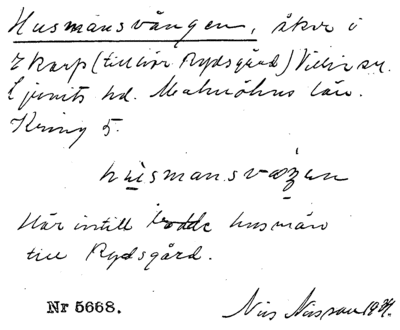 Husmansvången, åker i
Zkarp (tillhör Rydsgård) Villie sn.
Ljunits hd. Malmöhus län.
Kring 5.
husmansvaŋen
Här intill bodde husmän
till Rydsgård.
Nr 5668.
Nils Nilsson